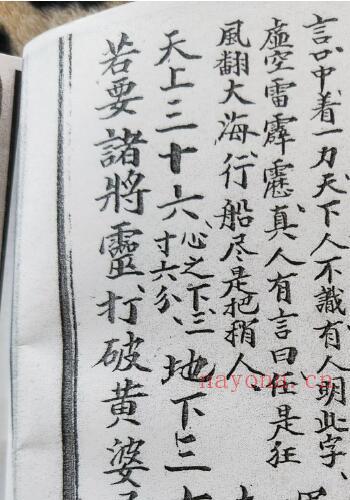 言口中着一力天下人不識有人明此字、
虛空雷霹靂真人有言曰任是狂
風翻大海行船尽是把稍人、
天上三十六、心之下三寸六分、地下三
若要諸將靈、打破黃婆
nayona.cn